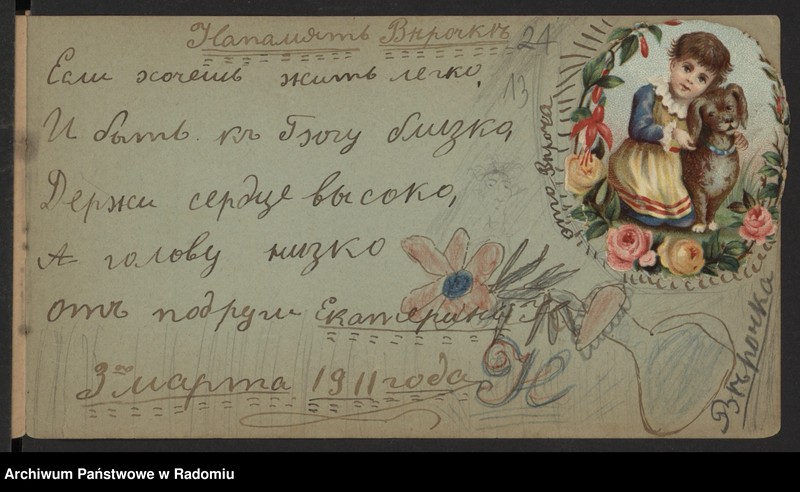 Напамять Вѣрочкѣ
21
13
Если хочешь жить легко,
И быть къ Богу близко,
Держи сердце высоко,
А голову низко
отъ подруги Екатерины
3го марта 1911 года
это Вѣроча
Вѣрочка
Archiwum Państwowe w Radomiu